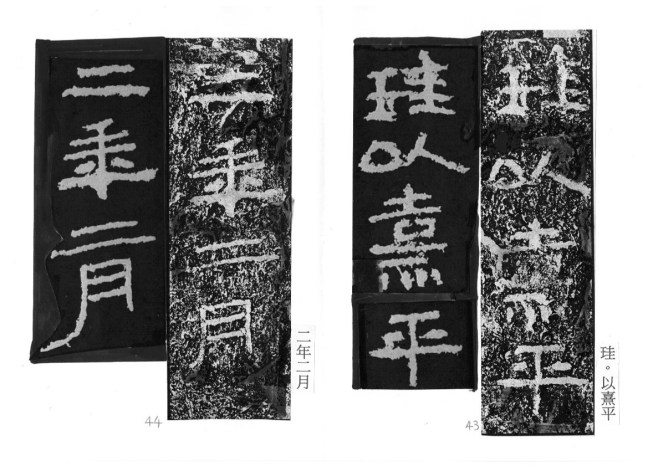 珪。以熹平
珪以熹平
珪以熹平
43
二年二月
二年二月
二年二月
44